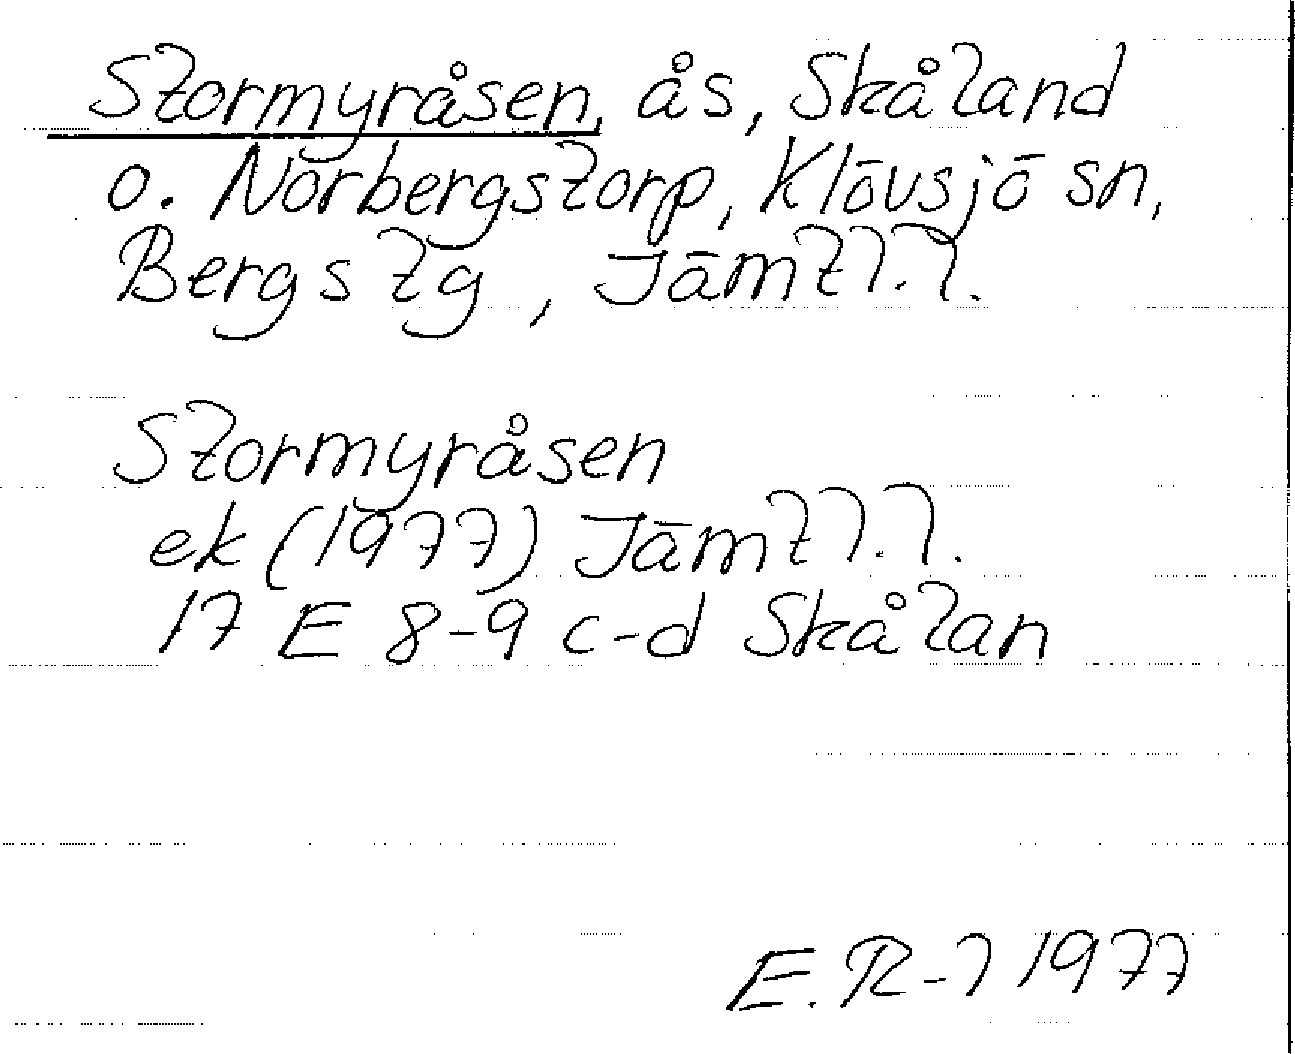 Stormyråsen, ås, Skåland
o. Norbergstorp, Klövsjö sn,
Bergs tg, Jämtl. l.
Stormyråsen
ek (1977) Jämtl. l.
17 E 8-9 c-d Skålan
E. R-l 1977